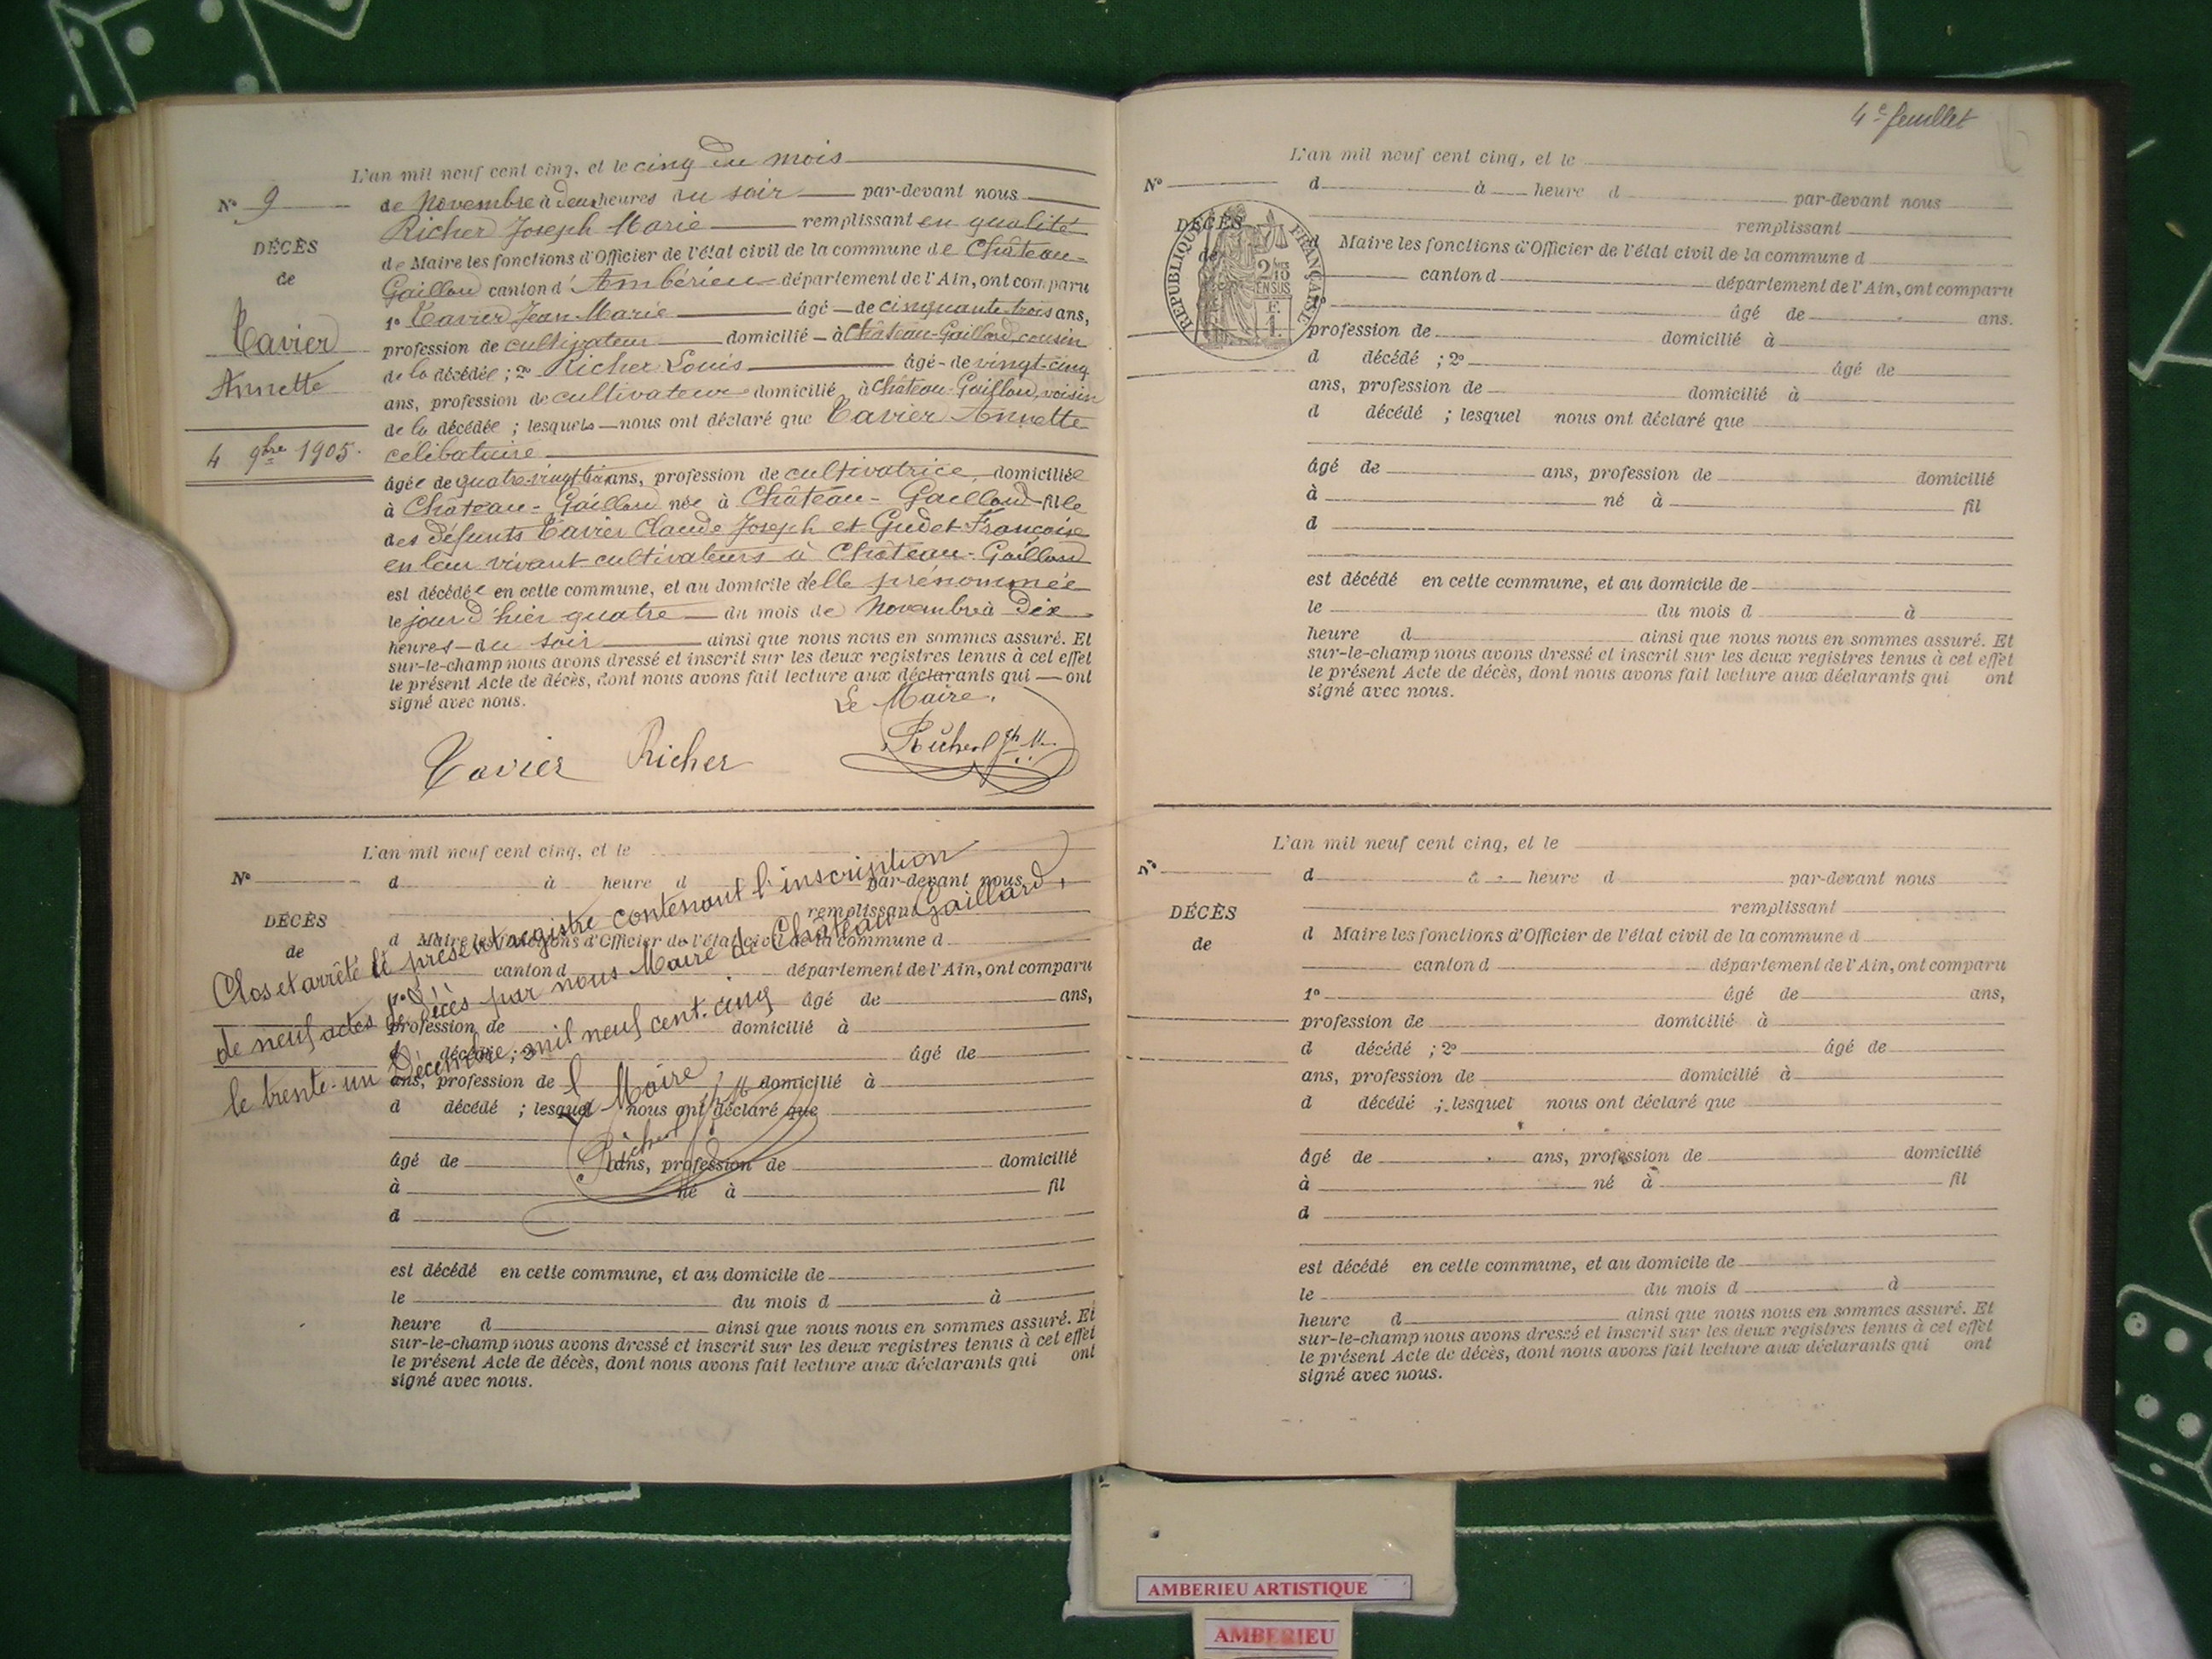 L'an mil neuf cent cinq, et le cinq du mois
N° 9
de Novembre à deux heures du soir par-devant nous
Richer Joseph Marie remplissant en qualité
DÉCÈS
de Maire les fonctions d'Officier de l'état civil de la commune de Château-
de
Gaillard canton d'Ambérieu département de l'Ain, ont comparu
1° Tavier Jean-Marie âgé de cinquante-trois ans,
Tavier
profession de cultivateur domicilié à Château-Gaillard, cousin
de la décédée ; 2° Richer Louis âgé de vingt-cinq
Annette
ans, profession de cultivateur domicilié à Château-Gaillard, voisin
de la décédée ; lesquels nous ont déclaré que Tavier Annette
4 9bre 1905.
célibataire
âgée de ans, profession de cultivatrice domiciliée
à Château-Gaillard née à Château-Gaillard fille
des défunts Tavier Claude Joseph et Gudet Françoise
en leur vivant cultivateurs à Château-Gaillard
est décédée en cette commune, et au domicile d'elle prénommée
le jour d'hier quatre du mois de Novembre à Dix
heures du soir ainsi que nous nous en sommes assuré. Et
sur-le-champ nous avons dressé et inscrit sur les deux registres tenus à cet effet
le présent Acte de décès, dont nous avons fait lecture aux déclarants qui ont
signé avec nous.
Le Maire,
Tavier Richer Richer Jh M.
L'an mil neuf cent cinq, et le
N°
d à heure d par-devant nous
remplissant
DÉCÈS
d Maire les fonctions d'Officier de l'état civil de la commune d
de
canton d département de l'Ain, ont comparu
1° âgé de ans,
profession de domicilié à
d décédé ; 2° âgé de
ans, profession de domicilié à
d décédé ; lesquel nous ont déclaré que
âgé de ans, profession de domicilié
à né à fil
d
est décédé en cette commune, et au domicile de
le du mois d à
heure d ainsi que nous nous en sommes assuré. Et
sur-le-champ nous avons dressé et inscrit sur les deux registres tenus à cet effet
le présent Acte de décès, dont nous avons fait lecture aux déclarants qui ont
signé avec nous.
Clos et arrêté le présent registre contenant l'inscription
de neuf actes de décès par nous Maire de Château Gaillard,
le trente-un Décembre mil neuf cent cinq
Le Maire,
Richer Jh M
4e feuillet
L'an mil neuf cent cinq, et le
N°
d à heure d par-devant nous
remplissant
DÉCÈS
d Maire les fonctions d'Officier de l'état civil de la commune d
de
canton d département de l'Ain, ont comparu
RÉPUBLIQUE FRANÇAISE
âgé de ans.
profession de domicilié à
d décédé ; 2° âgé de
ans, profession de domicilié à
d décédé ; lesquel nous ont déclaré que
âgé de ans, profession de domicilié
à né à fil
d
est décédé en cette commune, et au domicile de
le du mois d à
heure d ainsi que nous nous en sommes assuré. Et
sur-le-champ nous avons dressé et inscrit sur les deux registres tenus à cet effet
le présent Acte de décès, dont nous avons fait lecture aux déclarants qui ont
signé avec nous.
L'an mil neuf cent cinq, et le
N°
d à heure d par-devant nous
remplissant
DÉCÈS
d Maire les fonctions d'Officier de l'état civil de la commune d
de
canton d département de l'Ain, ont comparu
1° âgé de ans,
profession de domicilié à
d décédé ; 2° âgé de
ans, profession de domicilié à
d décédé ; lesquel nous ont déclaré que
âgé de ans, profession de domicilié
à né à fil
d
est décédé en cette commune, et au domicile de
le du mois d à
heure d ainsi que nous nous en sommes assuré. Et
sur-le-champ nous avons dressé et inscrit sur les deux registres tenus à cet effet
le présent Acte de décès, dont nous avons fait lecture aux déclarants qui ont
signé avec nous.
AMBERIEU ARTISTIQUE
AMBERIEU